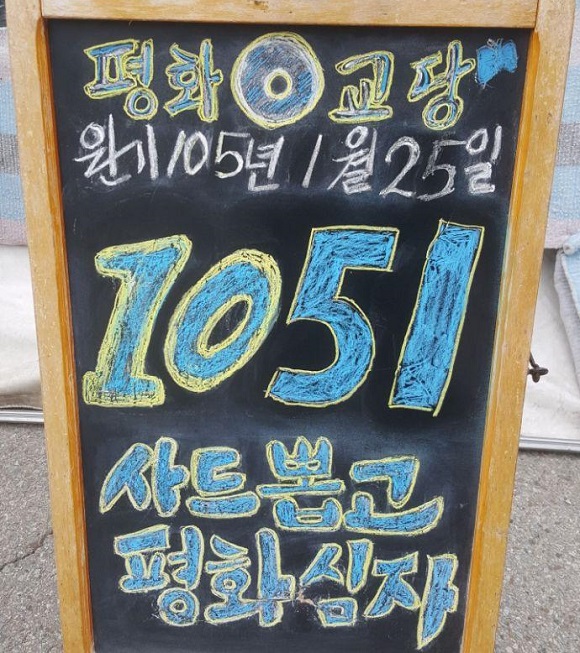 평화 교당
원기105년 1월 25일
1051
사드뽑고
평화심자